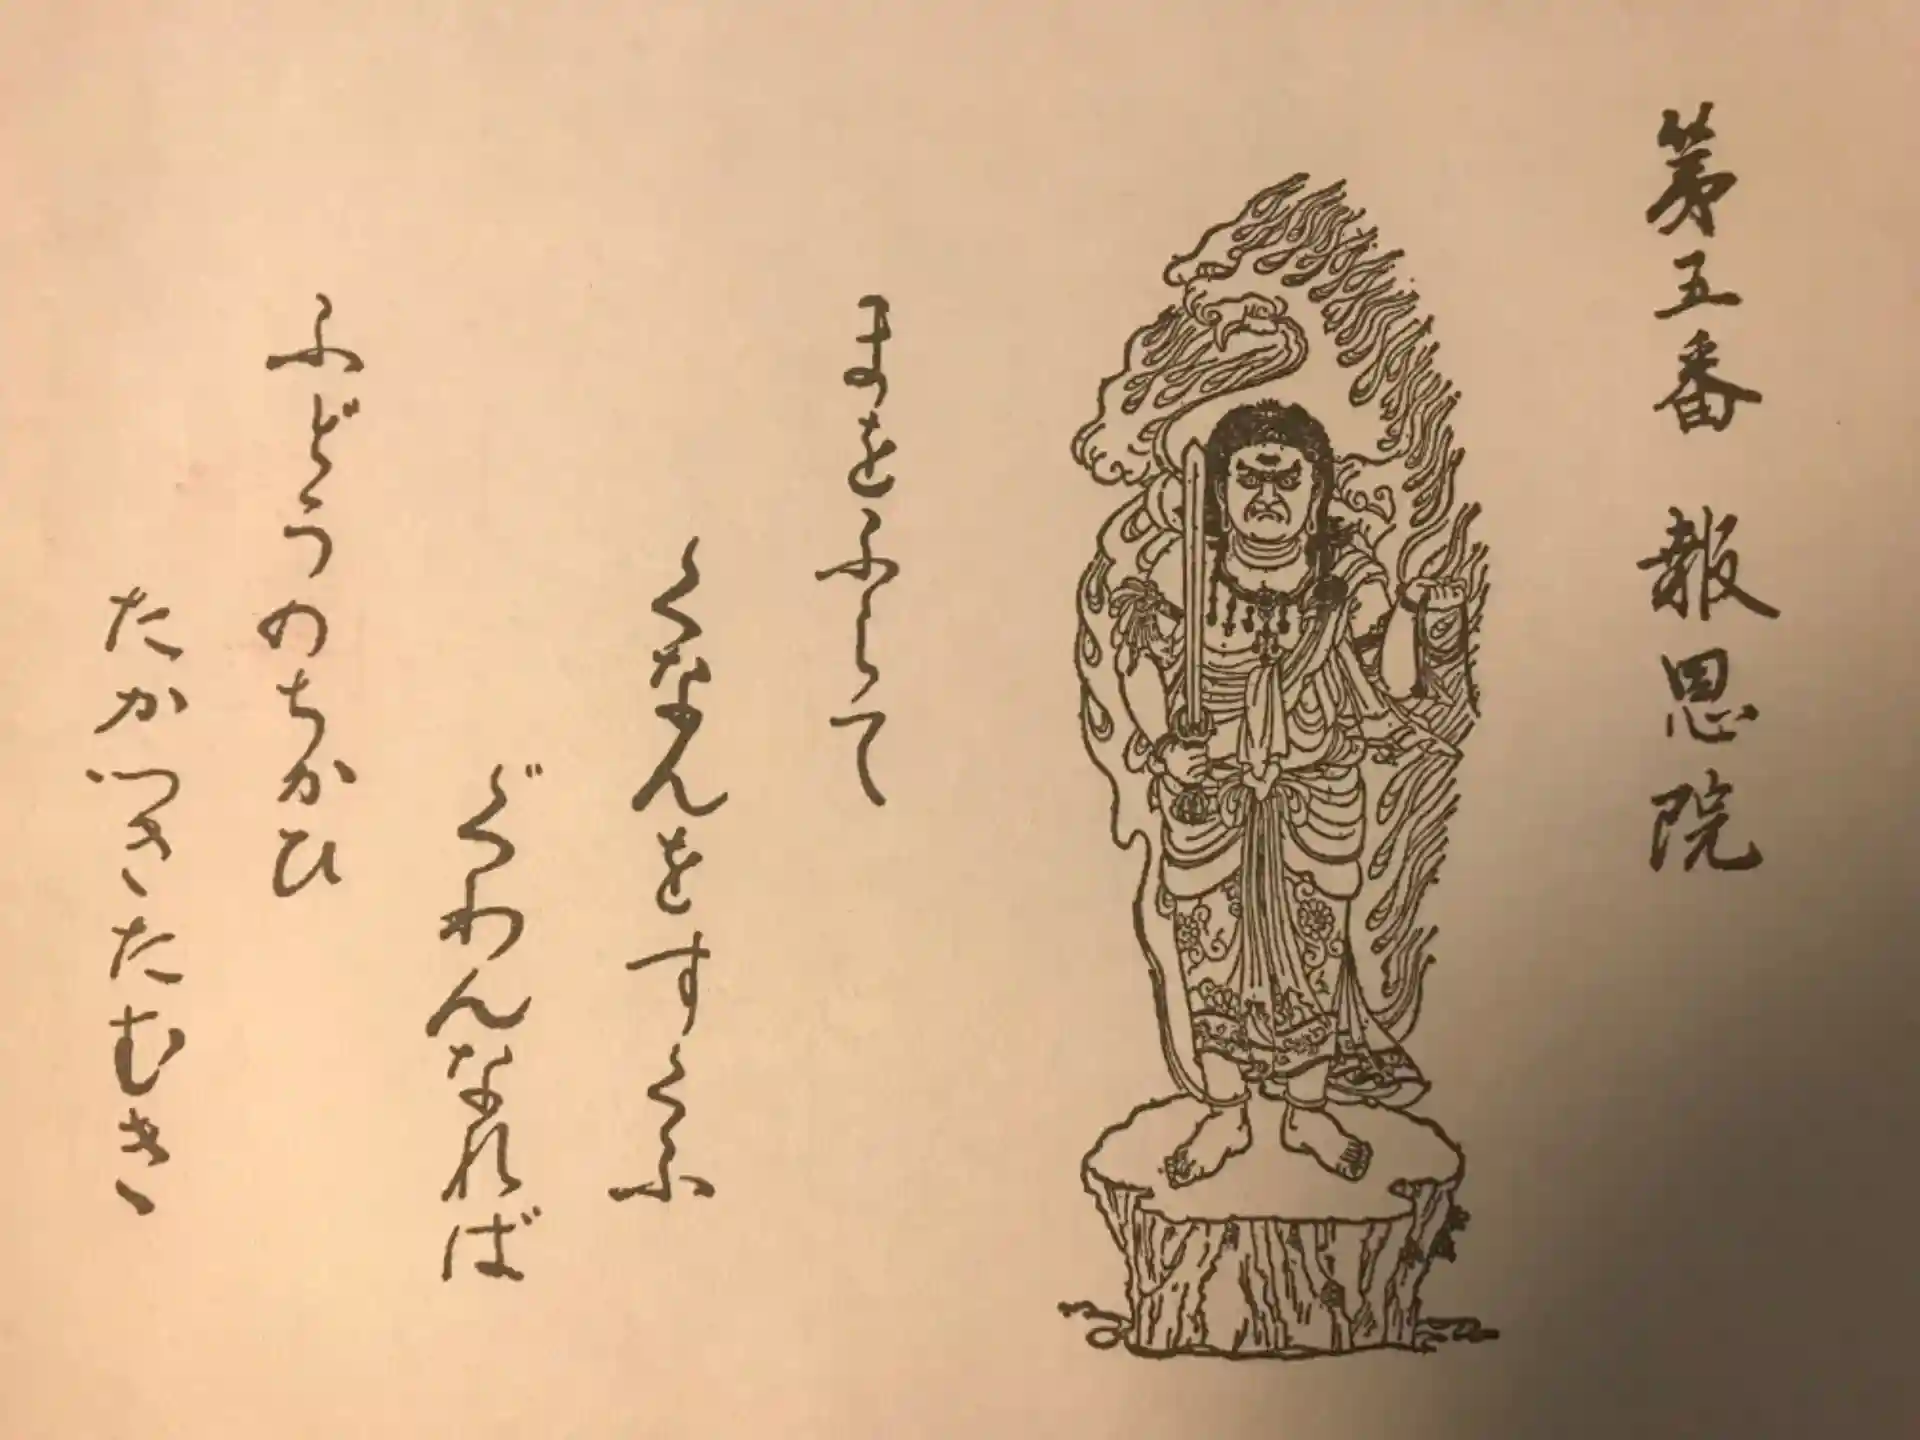 第五番 報恩院
まをふらて
くなんをすくふ
ぐわんなれば
ふどうのちかひ
たかつきたむき